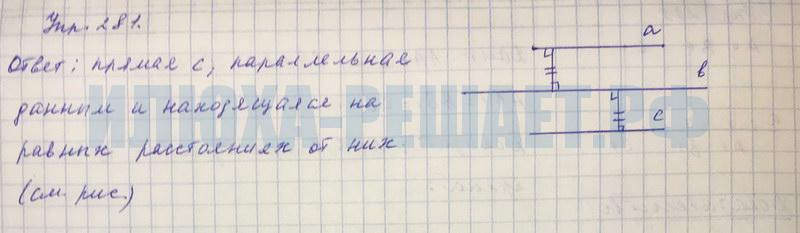 Упр. 281.
Ответ: прямая с, параллельная
данным и находящаяся на
равных расстояниях от них
(см. рис.)
a
в
c
ИЛЮХА-РЕШАЕТ.РФ